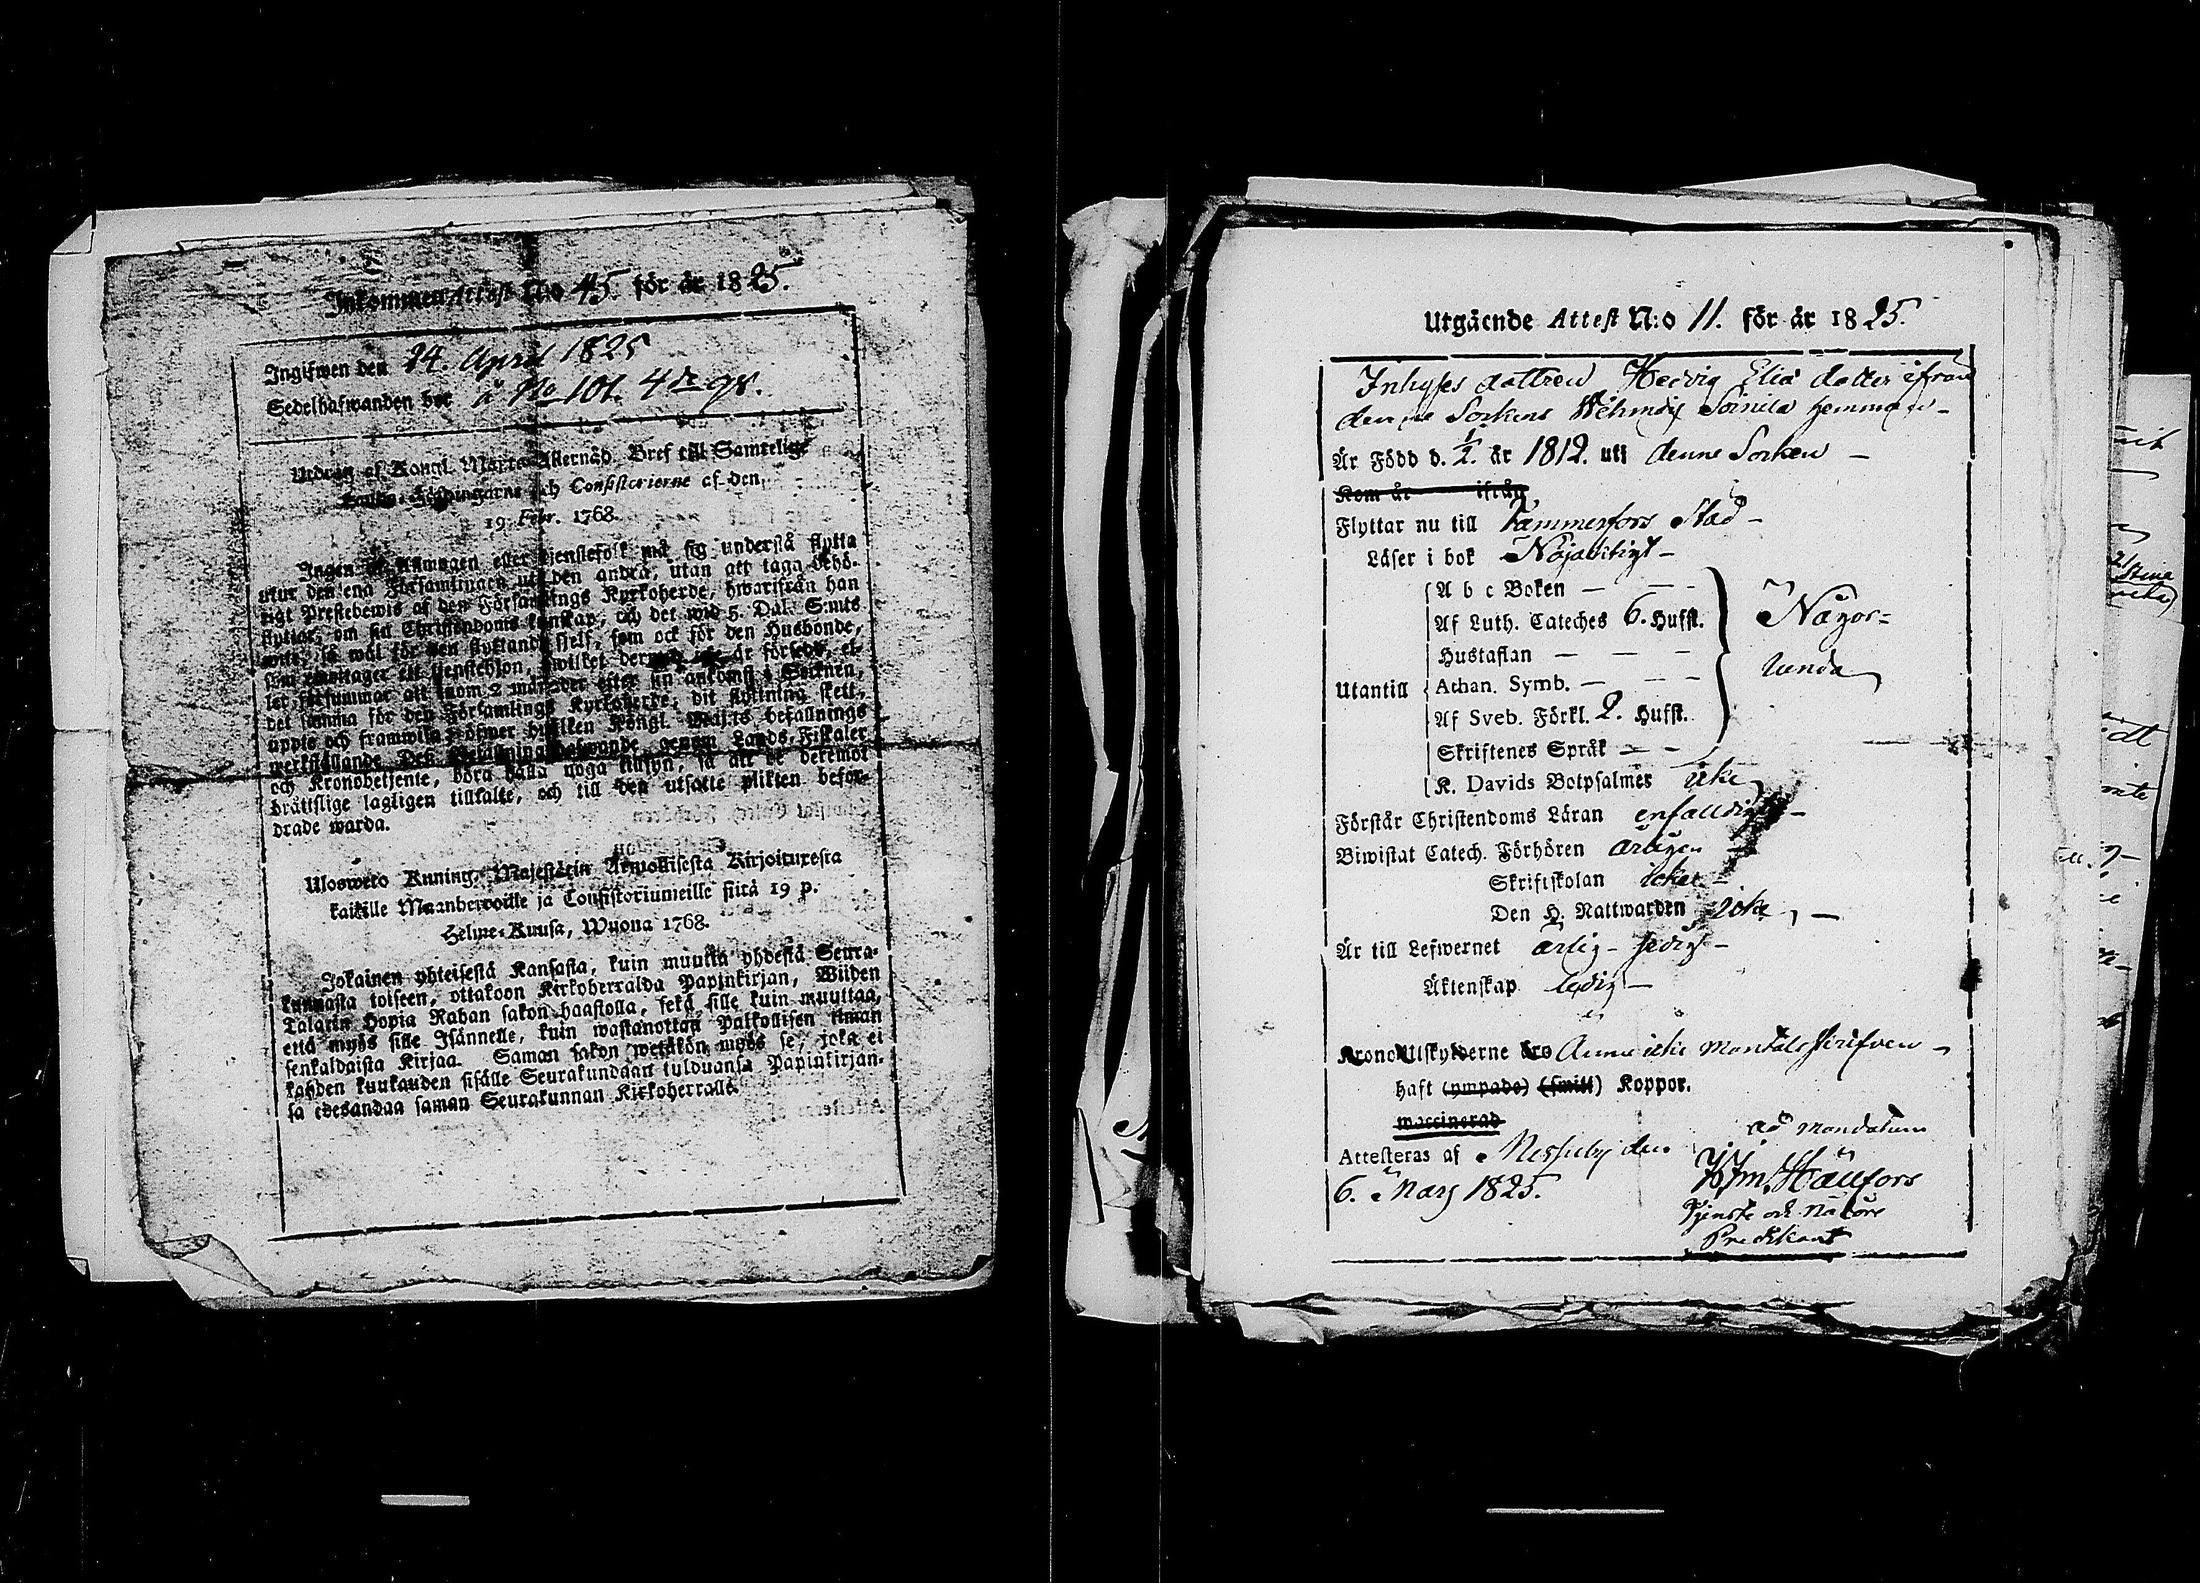 Inkommen Attest N:o 45. för år 1825.
Ingifwen den 24. April 1825
Sedelhafwanden bor å No 101. 4
Utdrag af Kongl. Maj:ts Bref till Samtelige
och Consistorierne af den
19 Febr. 1768.
Ingen af Allmogen eller tjenstefolk må sig understå flytta
utur den ena Församlingen uti den andra, utan att taga behö-
rigt Prestebewis af den Församlings Kyrkoherde, hwarifrån han
flyttar, om sin Christendoms kunskap, och det wid 5. Dal. S:mts
wite, så wäl för den flyttande sjelf, som ock för den Husbonde,
som emottager ett tjenstehjon, hwilket dermed icke är försedt, el-
ler försummar att inom 2 månader efter sin ankomst i Socknen,
det samma för den Församlings Kyrkoherde, dit flyttning skett,
uppte och framwisa, öfwer hwilken Kongl. Maj:ts befallnings
werkställande Dess Befallningshafwande genom Lands-Fiskaler
och Kronobetjente, böra hålla noga tillsyn, så att de deremot
brättslige lagligen tilltalte, och till den utsatte plikten befor-
drade warda.
Uloswero Kuning. Majestätin Armollisesta Kirjoituxesta
kaikille Maanherroille ja Consistoriumeille siitä 19 p.
Helme-Kuusa, Wuona 1768.
Jokainen yhteisestä Kansasta, kuin muutta yhdestä Seura-
kunnasta toiseen, ottakoon Kirkoherralda Papinkirjan, Wiiden
Talarin Hopia Rahan sakon haastolla, sekä sille kuin muuttaa,
että myös sille Isännelle, kuin wastanottaa Palkollisen ilman
senkaldaista Kirjaa. Saman sakon wetäkön myös se, joka ei
kahden kuukauden sisälle Seurakundaan tulduansa Papinkirjan-
sa edesandaa saman Seurakunnan Kirkoherralle.
Utgående Attest N:o 11. för år 1825.
Inhyses dottren Hedvig Elia dotter ifrån
denna Sockens Soinila hemman-
År Född d. 1/2. år 1812. uti denne Socken -
Kom år ifrån
Flyttar nu till Tammerfors Stad -
Läser i bok Nöjaktigt -
A b c Boken - - -
Af Luth. Cateches 6. Hufst.
Hustaflan - - -
Utantill Athan. Symb. - - -
Af Sveb. Förkl. 2. Hufst.
Skriftenes Språk - -
Någor=
lunda
K. Davids Botpsalmer icke
Förstår Christendoms Läran enfalldigt -
Biwistat Catech. Förhören årligen -
Skriftskolan icke -
Den H. Nattwarden icke, -
Är till Lefwernet ärlig - sedigt -
Äktenskap ledig -
KronoUtskylderne äro Ännu icke Mantalsskrifven -
haft (ympade) (smitt) Koppor.
waccinerad
Attesteras af Messuby den
6. Mars 1825.
ad mandatum
Hällfors
Tjenste och
Predikant